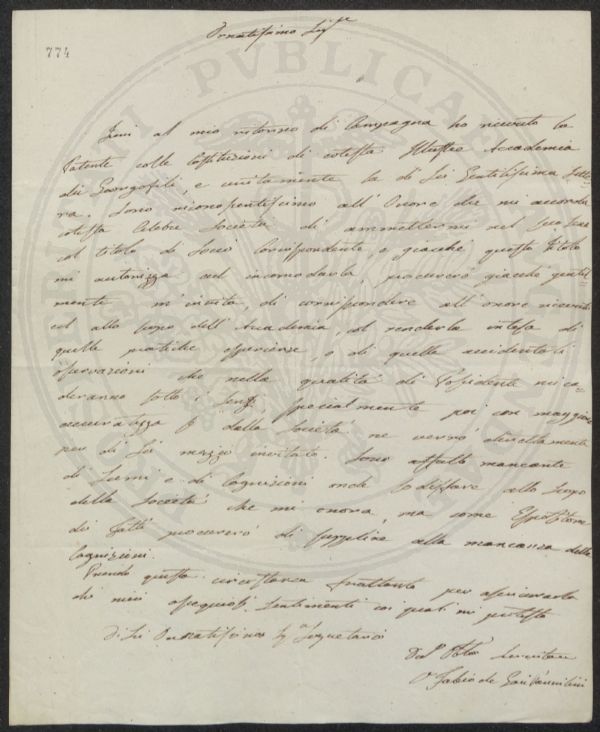 774
Ornatissimo Sigre
Ieri al mio ritorno di Campagna ho ricevuto la
Patente colle Costituzioni di cotesta Illustre Accademia
dei Georgofili, e unitamente la di Lei Gentilissima Lette-
ra. Sono riconoscentissimo all'Onore che mi accorda
cotesta Celebre Società di ammettermi nel suo
col titolo di Socio Corrispondente, e giacchè questo titolo
mi autorizza ad incomodarla, procurerò giacchè gentil-
mente m'invita, di corrispondere all'onore ricevuto
ed allo scopo dell'Accademia, col renderla intesa di
quelle pratiche esperienze, o di quelle accidentali
osservazioni che nella qualità di Possidente mi ca-
deranno sotto i sensi, specialmente poi con maggiore
accuratezza se dalla Società ne verrò direttamente
per di Lei mezzo invitato. Sono affatto mancante
di Lumi e di Cognizioni onde sodisfare allo scopo
della Società che mi onora, ma come Espositore
di fatti procurerò di supplire alla mancanza delle
Cognizioni.
Prendo questa circostanza frattanto per assicurarla
dei miei ossequiosi sentimenti coi quali mi protesto
Di Lei Ornatissimo Sigr Segretario
Devo Obbo Servitore
Fabio de